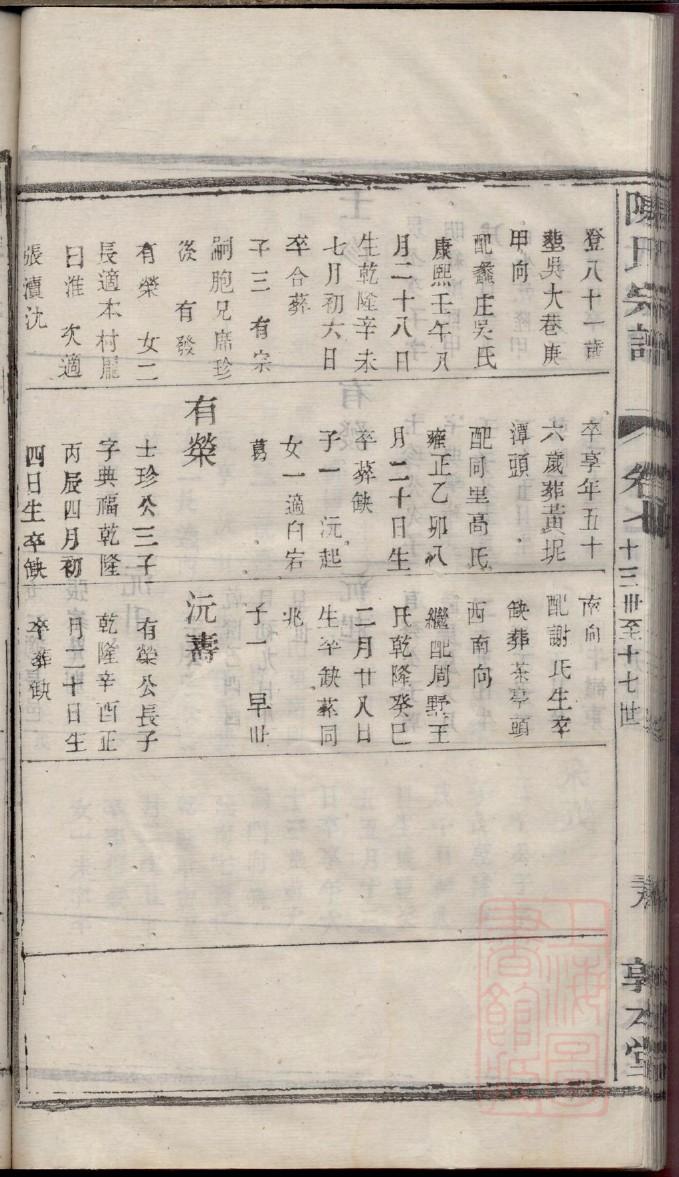 陳氏宗譜
卷七
十三世至十七世
敦本堂
登八十一歲
塟吳大巷庚
甲向
配蠡庄吳氏
康熙壬午八
月二十八日
生乾隆辛未
七月初六日
卒合葬
子三 有宗
嗣胞兄席珍
後 有發
有榮 女二
長適本村龎
曰淮 次適
張瀆沈
卒享年五十
六歲葬黃坭
潭頭
配同里高氏
雍正乙卯八
月二十日生
卒葬缺
子一 沅起
女一適白宕
葛
有榮
士珍公三子
字典福乾隆
丙辰四月初
四日生卒缺
南向
配謝氏生卒
缺葬茶亭頭
西南向
繼配周野王
氏乾隆癸巳
二月廿八日
生卒缺葬同
兆
子一 早卋
沅壽
有榮公長子
乾隆辛酉正
月二十日生
卒葬缺
上海圖書館藏